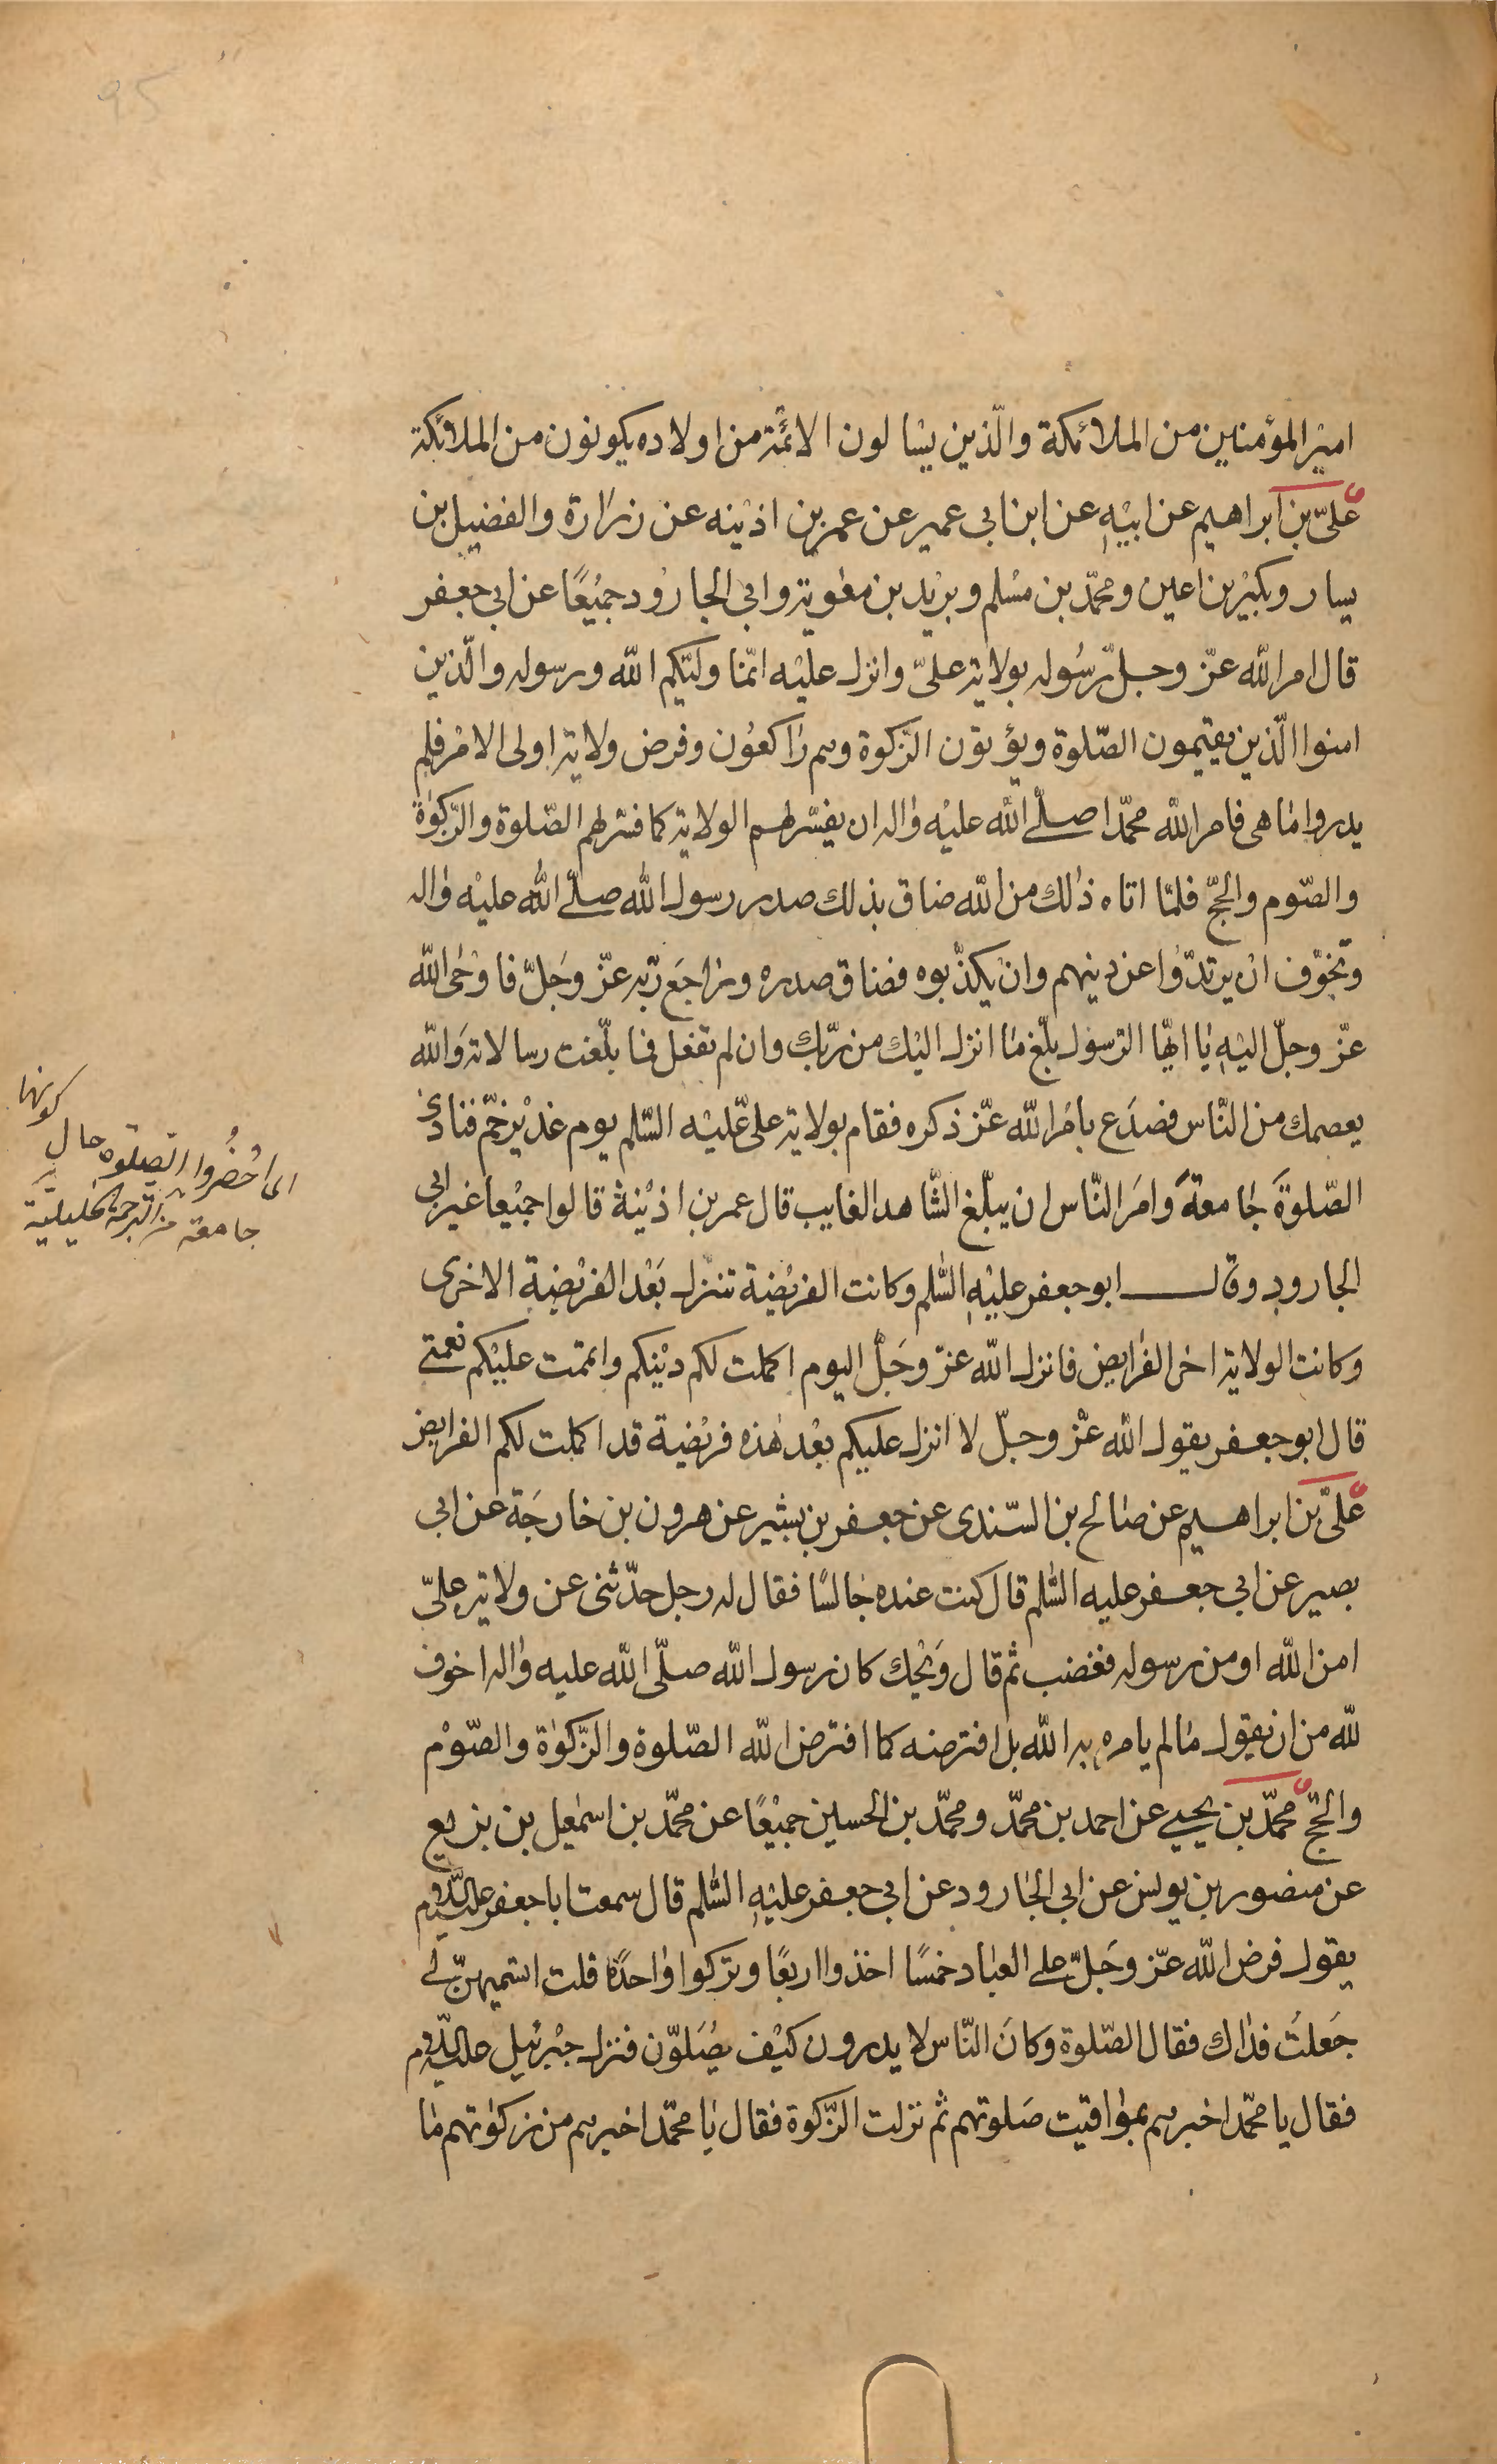 امیر المؤمنین من الملائكة والّذین یسالون الائمّة من اولاده یكونون من الملائكة
علیّ بن ابراهیم عن ابیه عن ابن ابی عمیر عن عمر بن اذینه عن زرارة والفضیل بن
یسار وبكیر بن اعین ومحمّد بن مسلم وبرید بن معویة وابی الجارود جمیعًا عن ابی جعفر
قال امر الله عزّ وجلّ رسوله بولایة علیّ وانزل علیه انّما ولیّكم الله ورسوله والّذین
امنوا الّذین یقیمون الصّلوة ویؤتون الزّكوة وهم راكعون وفرض ولایة اولی الامر فلم
یدروا ما هی فامر الله محمّدا صلّی الله علیه واله ان یفسّر لهم الولایة كما فسّر لهم الصّلوة والزّكوة
والصّوم والحجّ فلمّا اتاه ذلك من الله ضاق بذلك صدر رسول الله صلّی الله علیه واله
وتخوّف ان یرتدّوا عن دینهم وان یكذّبوه فضاق صدره وراجع ربّه عزّ وجلّ فاوحی الله
عزّ وجلّ الیه یا ایّها الرّسول بلّغ ما انزل الیك من ربّك وان لم تفعل فما بلّغت رسالاته والله
یعصمك من النّاس فصدع بامر الله عزّ ذكره فقام بولایة علیّ علیه السّلم یوم غدیر خمّ فنادی
الصّلوة جامعة وامر النّاس ان یبلّغ الشّاهد الغایب قال عمر بن اذینة قالوا جمیعا غیر ابی
الجارود وقال ابو جعفر علیه السّلم وكانت الفریضة تنزل بعد الفریضة الاخری
وكانت الولایة اخر الفرایض فانزل الله عزّ وجلّ الیوم اكملت لكم دینكم واتممت علیكم نعمتی
قال ابو جعفر یقول الله عزّ وجلّ لا انزل علیكم بعد هذه فریضة قد اكملت لكم الفرایض
علیّ بن ابراهیم عن صالح بن السّندی عن جعفر بن بشیر عن هرون بن خارجة عن ابی
بصیر عن ابی جعفر علیه السّلم قال كنت عنده جالسًا فقال له رجل حدّثنی عن ولایة علیّ
امن الله او من رسوله فغضب ثم قال ویحك كان رسول الله صلّی الله علیه واله اخوف
لله من ان یقول ما لم یامره به الله بل افترضه كما افترض الله الصّلوة والزّكوة والصّوم
والحجّ محمّد بن یحیی عن احمد بن محمّد ومحمّد بن الحسین جمیعًا عن محمّد بن اسمعیل بن بزیع
عن منصور بن یونس عن ابی الجارود عن ابی جعفر علیه السّلم قال سمعت ابا جعفر علیه السّلم
یقول فرض الله عزّ وجلّ علی العباد خمسًا اخذوا اربعًا وتركوا واحدًة قلت اتسمّیهنّ لی
جعلت فداك فقال الصّلوة وكان النّاس لا یدرون كیف یصلّون فنزل جبرئیل علیه السّلم
فقال یا محمّد اخبرهم بمواقیت صلوتهم ثم نزلت الزّكوة فقال یا محمّد اخبرهم من زكوتهم ما
كونها
ای احضروا الصلوة حال
جامعة من الترجمة الخلیلیّة
95